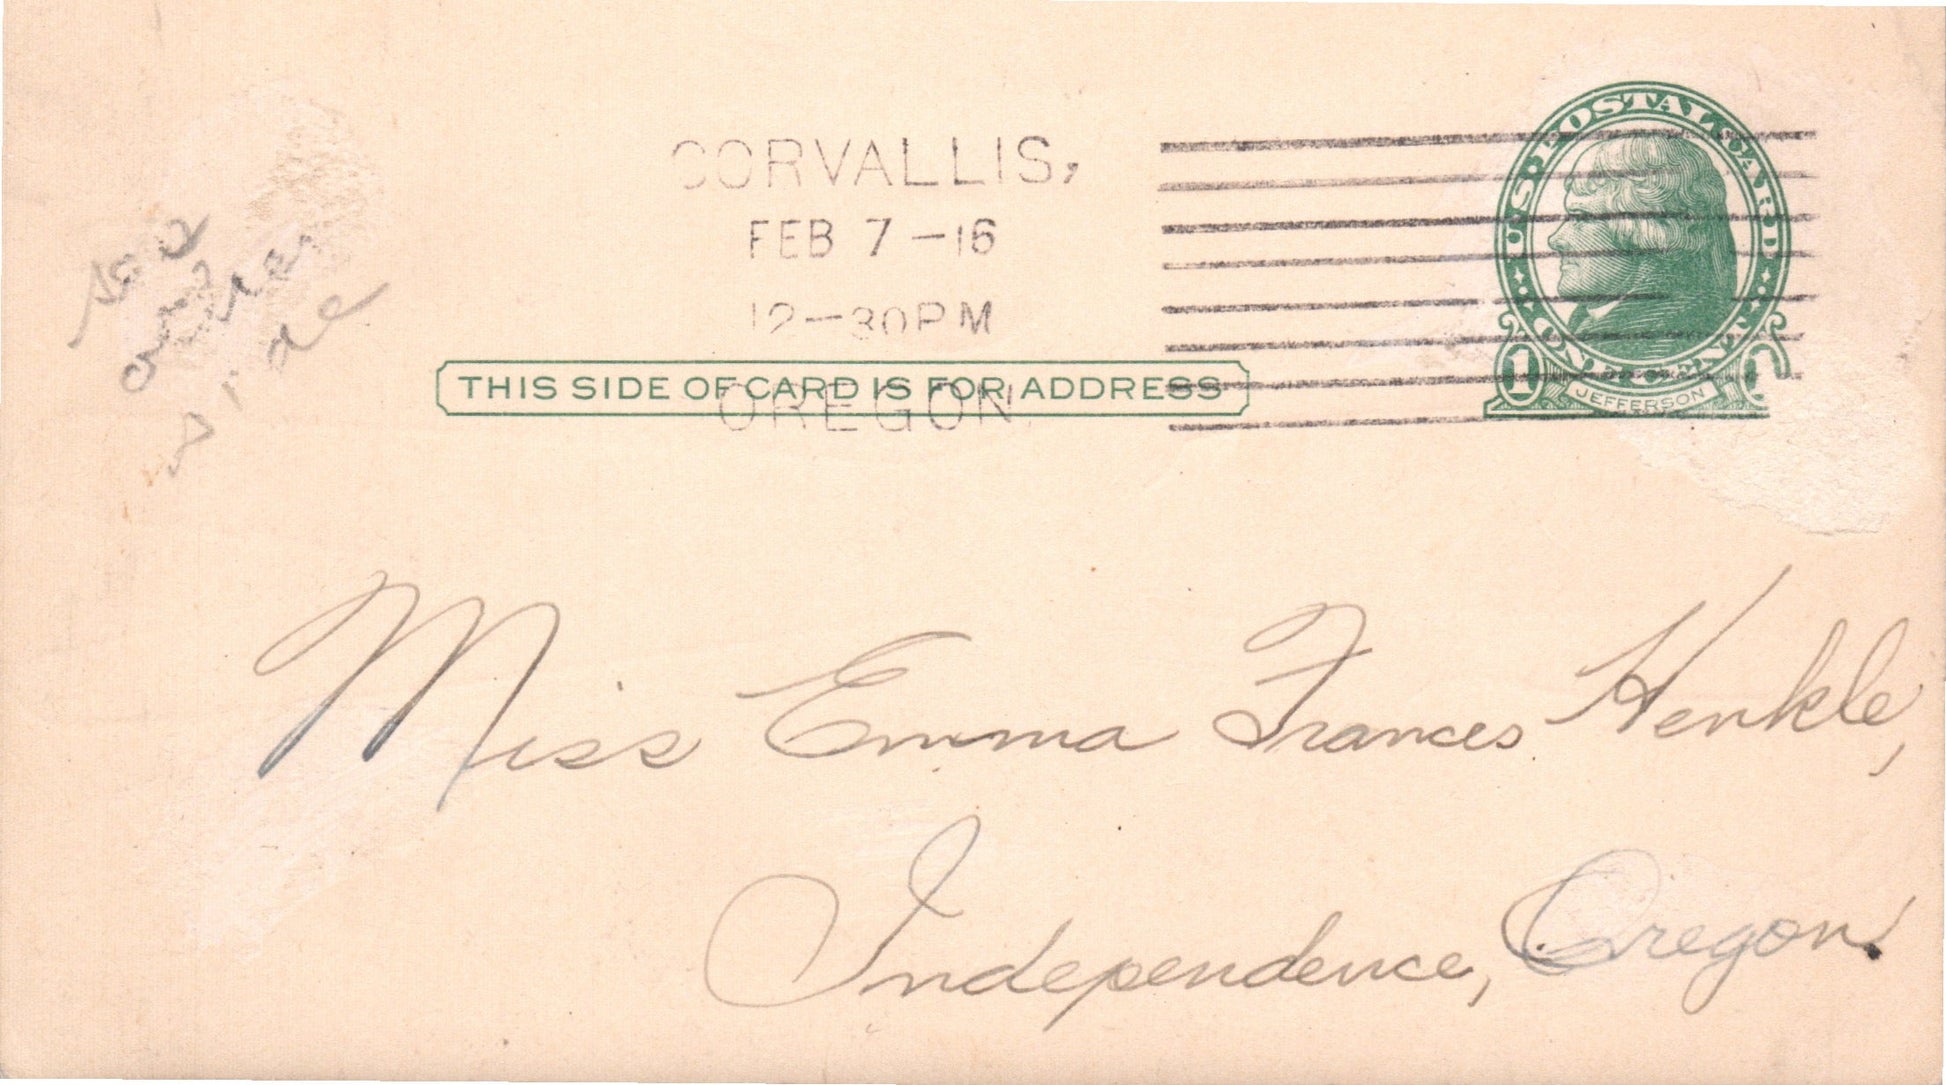 CORVALLIS,
FEB 7 - 16
12-30PM
OREGON.
U.S. POSTAL CARD
ONE CENT
1
JEFFERSON
THIS SIDE OF CARD IS FOR ADDRESS
see
other
side
Miss Emma Frances Henkle,
Independence, Oregon.